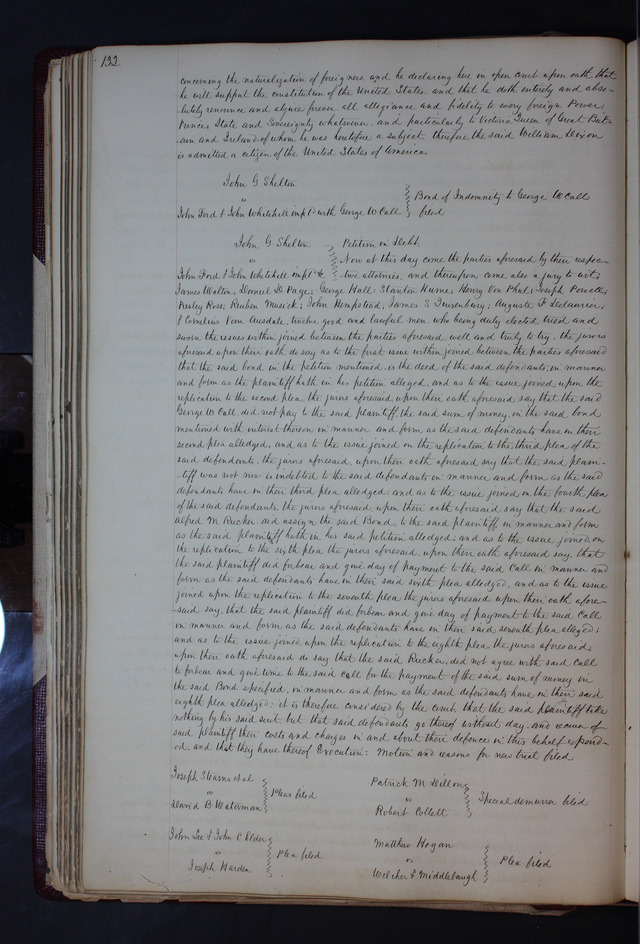 132
concerning the naturalization of foreigners and he declaring here in open court upon oath that
he will support the constitution of the United States and that he doth entirely and abso-
lutely renounce and abjure forever all allegiance and fidelity to every foreign Power,
Prince, State and Sovereignty whatsoever, and particularly to Victoria Queen of Great Brit-
ain and Ireland, of whom he was heretofore a subject, therefore the said William Dixon
is admitted a citizen of the United States of America
John G Shelton
vs
John Ford & John Whitehill impld with George W Call
Bond of Indemnity to George W Call
filed
John G Shelton
vs
John Ford & John Whitehill impld &c
Petition in Debt.
Now at this day come the parties aforesaid by their respec-
-tive attornies, and thereupon come also a jury to wit;
James Walton, Daniel D Page, George Hall, Stanton Hume, Henry Von Phul, Joseph Powell,
Presley Ross, Reuben Musick, John Hempstead, James S Quisenbury, Auguste F
& Cornelius Van Ausdale, twelve good and lawful men who being duly elected tried and
sworn the issues within joined between the parties aforesaid well and truly to try, the jurors
aforesaid upon their oath do say as to the first issue within joined between the parties aforesaid
that the said bond in the petition mentioned, is the deed of the said defendants, in manner
and form as the plaintiff hath in his petition alleged, and as to the issue joined upon the
replication to the second plea the jurors aforesaid upon their oath aforesaid say that the said
George W Call did not pay to the said plaintiff, the said sum of money, in the said bond
mentioned with interest thereon in manner and form as the said defendants have in their
second plea alledged, and as to the issue joined on the replication to the third plea of the
said defendants, the jurors aforesaid, upon their oath aforesaid say that the said plain-
-tiff was not nor is indebted to the said defendants in manner and form as the said
defendants have in their third plea alledged: and as to the issue joined on the fourth plea
of the said defendants, the jurors aforesaid, upon their oath aforesaid say that the said
Alfred M Rucker did assign the said Bond, to the said plaintiff in manner and form
as the said plaintiff hath in his said petition alledged; and as to the issue joined on
the replication to the sixth plea the jurors aforesaid, upon their oath aforesaid say, that
the said plaintiff did forbear and give day of payment to the said Call in manner and
form as the said defendants have in their said sixth plea alledged, and as to the issue
joined upon the replication to the seventh plea the jurors aforesaid upon their oath afore-
said say, that the said plaintiff did forbear and give day of payment to the said Call
in manner and form as the said defendants have in their said seventh plea alleged;
and as to the issue joined upon the replication to the eighth plea the jurors aforesaid,
upon their oath aforesaid do say that the said Rucker, did not agree with said Call
to forbear and give time to the said Call for the payment of the said sum of money in
the said Bond specified, in manner and form as the said defendants have in their said
eighth plea alledged: it is therefore considered by the court, that the said plaintiff take
nothing by his said suit but that said defendants go thereof without day, and recover of
said plaintiff their costs and charges in and about their defence in this behalf expend-
-ed, and that they have thereof Execution: Motion and reasons for new trial filed
Joseph Stearns et al
vs
David B Waterman
Pleas filed
Patrick M Dillon
vs
Robert Collett
Special demurrer filed
John Lee & John C Elder
vs
Joseph Harden
Plea filed
Matthew Hogan
vs
Welcher & Middlebaugh
Plea filed